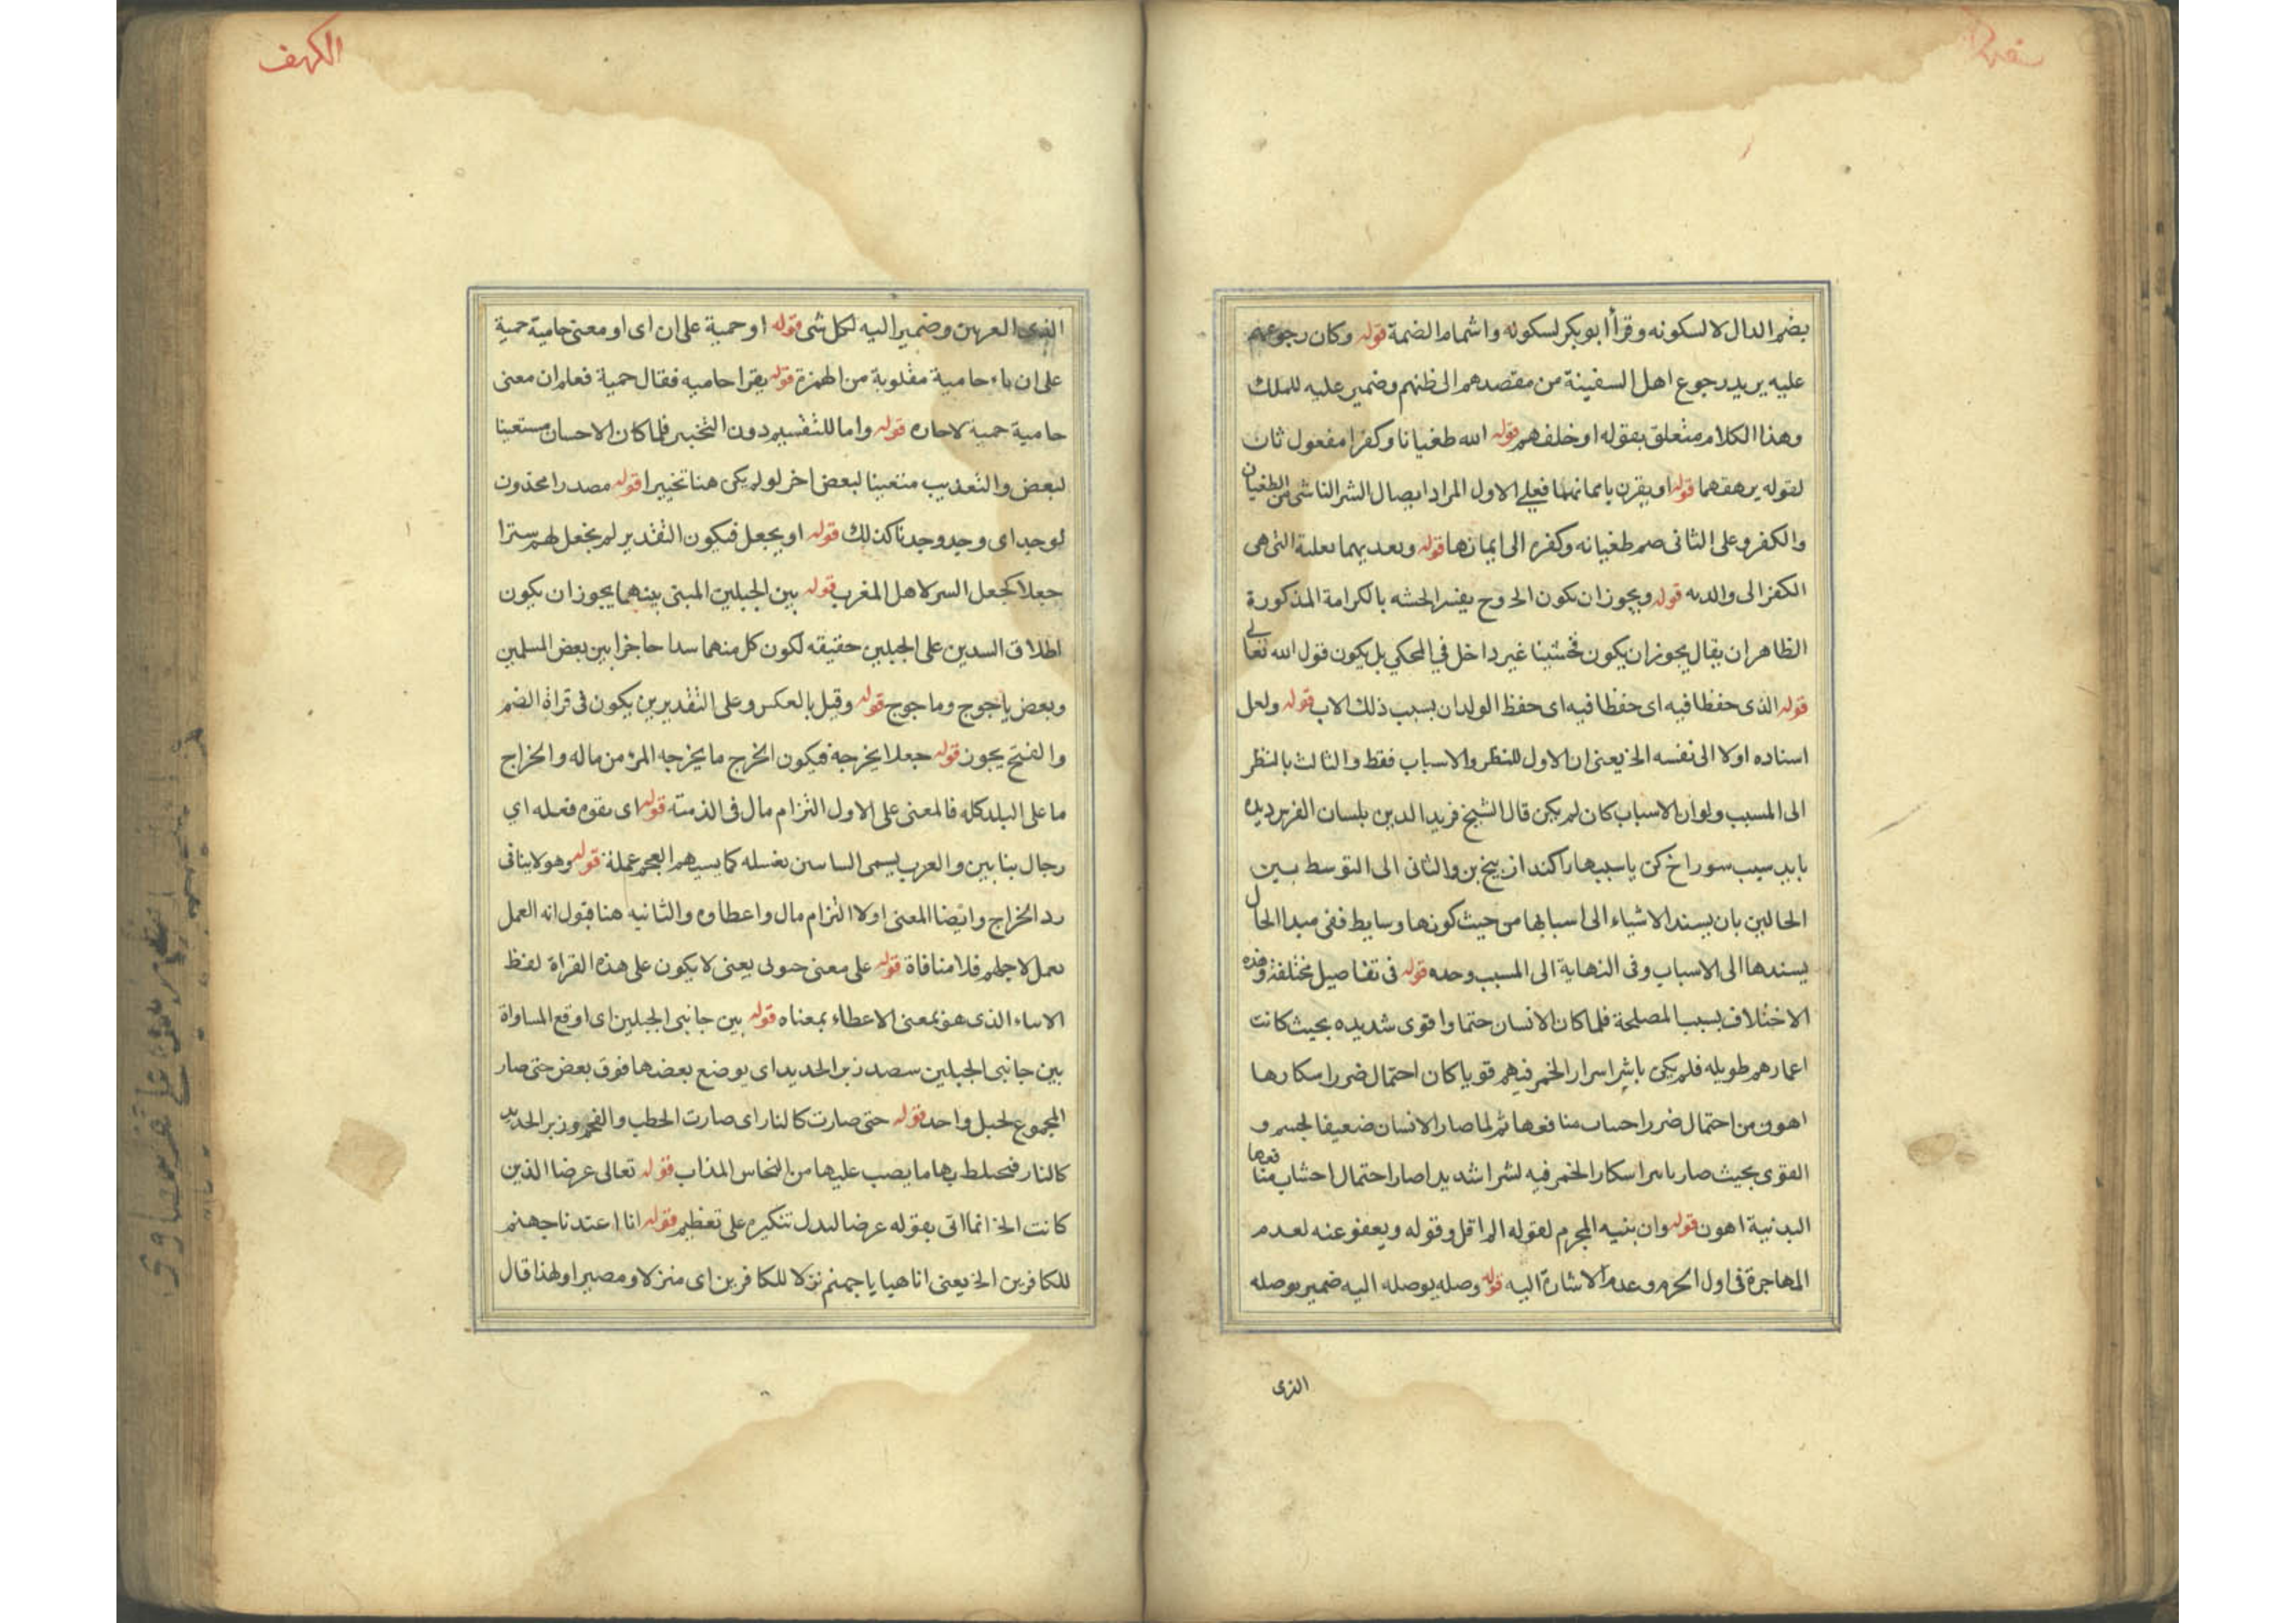 بضم الدال لا لسكونه وقرأ ابو بكر لسكونه واشمام الضمة قوله وكان رجوعهم
عليه يريد رجوع اهل السفينة من مقصدهم الى ظنهم وضمير عليه للملك
وهذا الكلام متعلق بقوله او خلفهم قوله الله طغيانا وكفرا مفعول ثان
لقوله يرهقهما قوله او يقرن بايمانهما فعلى الاول المراد ايصال الشر الناشى من الطغيان
والكفر وعلى الثانى ضم طغيانه وكفره الى ايمانها قوله وبعديهما بعلته التى هى
الكفر الى والديه قوله ويجوز ان يكون الخ وح يفسر الخشيه بالكراهة المذكورة
الظاهر ان يقال يجوز ان يكون فخشينا غير داخل في المحكي بل يكون قول الله تعالى
قوله الذى حفظا فيه اى حفظا فيه اى حفظ الولدان بسبب ذلك الاب قوله ولعل
اسناده اولا الى نفسه الخ يعنى ان الاول للنظر والاسباب فقط والثالث بالنظر
الى المسبب ولو ان الاسباب كان لم يكن قال الشيخ فريد الدين بلسان الفرس ديده
بايد سبب سوراخ كن ياسببها را كند از بيخ بن والثانى الى التوسط بين
الحالين بان يسند الاشياء الى اسبابها من حيث كونها وسايط ففى مبدا الحال
يسندها الى الاسباب وفى النهاية الى المسبب وحده قوله فى تفاصيل مختلفة وهذه
الاختلاف بسبب المصلحة فلما كان الانسان حتما واقوى شديده بحيث كانت
اعمارهم طويله فلم يكى باثر اسرار الخمر فيهم قويا كان احتمال ضرر اسكارها
اهون من احتمال ضرر احساب منافعها ثم لما صار الانسان ضعيفا لجسم و
القوى بحيث صار باسر اسكار الخمر فيه لشر اشديد اصار احتمال احتساب منافعها
البدنية اهون قوله وان ينبه المجرم لقوله الم اقل وقوله ويعفو عنه لعدم
المهاجرة فى اول الجرم وعدم الاشارة اليه قوله وصله يوصله اليه ضمير يوصله
الذى
الكهف
الذى العرهن وضمير اليه لكل شى قوله او حمية على ان اى او معنى حامية حمية
على ان ياء حامية مقلوبة من الهمزة قوله يقرا حاميه فقال حمية فعلم ان معنى
حامية حميه لا حاره قوله واما للتقسيم دون التخيير فلما كان الاحسان متعينا
لبعض والتعذيب متعينا لبعض اخر لو لم يكى هنا تخييرا قوله مصدر امحذون
لوجد اى وجد وجدنا كذلك قوله او يجعل فيكون التقدير لم يجعل لهم سترا
جعلا كجعل السر لاهل المغرب قوله بين الجبلين المبنى بينهما يجوز ان يكون
اطلاق السدين على الجبلين حقيقه لكون كل منهما سدا حاجزا بين بعض المسلمين
وبعض ياجوج وماجوج قوله وقيل بالعكس وعلى التقديرين يكون فى قراة الضم
والفتح يجوز قوله جعلا يخرجه فيكون الخرج ما يخرجه المرء من ماله والخراج
ما على البلد كله فالمعنى على الاول التزام مال فى الذمته قوله اى بقوه فعله اي
رجال بنابين والعرب يسمى الساسن بغسله كما يسيهم العجم عملة قوله وهو لا ينافى
رد الخراج وايضا المعنى اولا التزام مال واعطاوه والثانيه هنا قبول انه العمل
بعمل لاجلهم فلا منافاة قوله على معنى جيئونى يعنى لا يكون على هذه القراة لفظ
الاساء الذى هو بمعنى الاعطاء بمعناه قوله بين جانبى الجبلين اى اوقع المساواة
بين جانبى الجبلين بنضد زبر الحديد اى يوضع بعضها فوق بعض حتى صار
المجموع لجبل واحد قوله حتى صارت كالنار اى صارت الحطب والفحم وزبر الحديد
كالنار فتحلط بها ما يصب عليها من النحاس المذاب قوله تعالى عرضا الذين
كانت الخ انما اتى بقوله عرضا ليدل تنكيره على تعظيم قوله انا اعتدنا جهنم
للكافرين الخ يعنى انا هيا يا جهنم نزلا للكافرين اى منزلا ومصيرا ولهذا قال